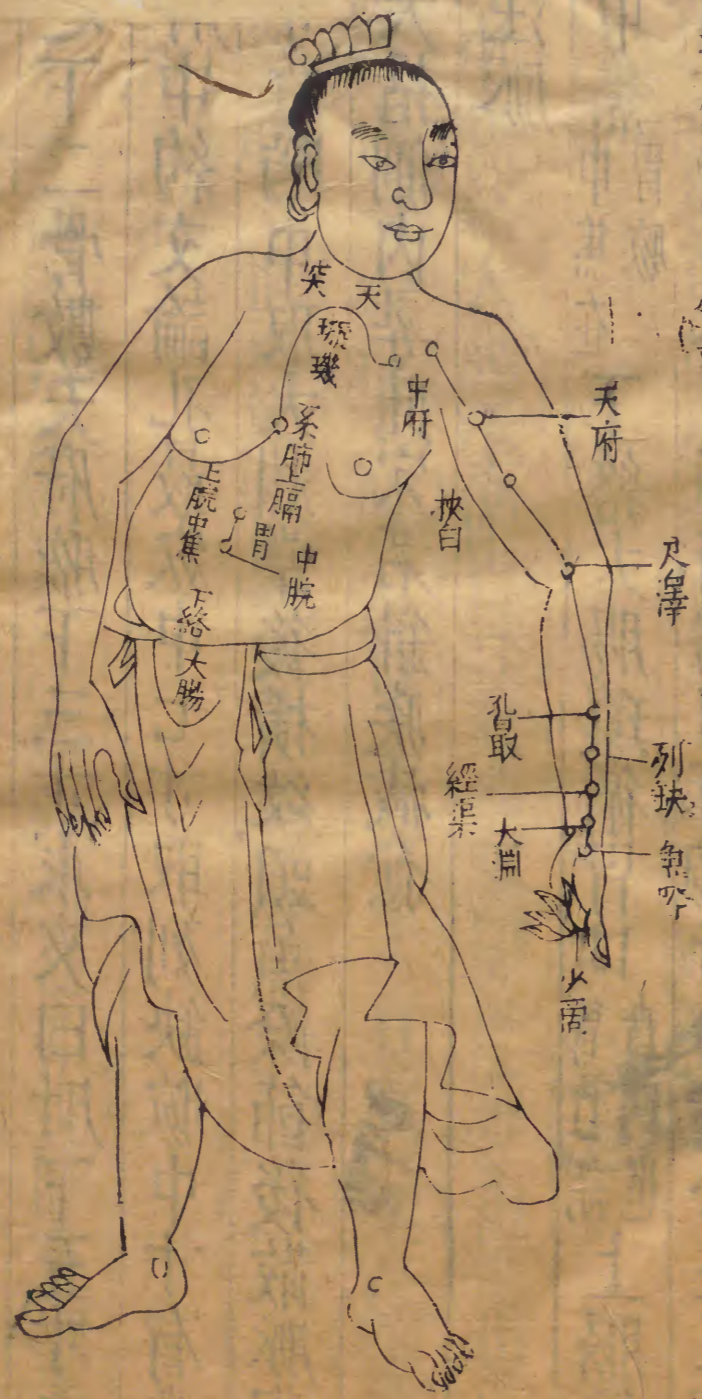 天突
璇璣
中府
天府
系肺上膈
挾白
上脘中焦
胃
中脘
尺澤
下絡大腸
孔取
列缺
經渠
大淵
魚際
少商